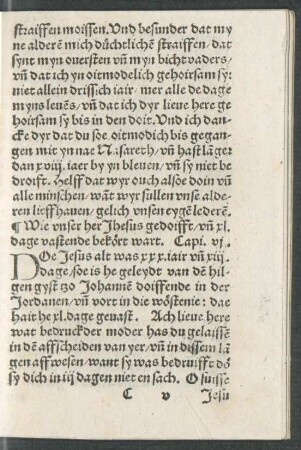 straiffen moissen. Vnd besunder dat my
ne alderē mich düchtlichē straiffen/dat
synt myn ouersten vn̄ myn bicht vaders/
vn̄ dat ich yn oitmodelich gehoirsam sy:
niet allein drissich iair/mer alle de dage
myns leuēs/vn̄ dat ich dyr lieue here ge
hoirsam sy bis in den doit. Vnd ich dan-
cke dyr dat du soe oitmodich bis gegan
gen mit yn nae Nasareth/vn̄ hast lāger
dan xviij. iaer by yn bleuen/vn̄ sy niet be
droift. Helff dat wyr ouch alsoe doin vn̄
alle minschen/want wyr sullen vnse alde-
ren lieff hauen/gelich vnsen eygē lederē.
¶ Wie vnser her Jhesus gedoifft/vn̄ xl.
dage vastende bekōrt wart. Capi. vj.
DOe Jesus alt was xxx.iair vn̄ xiij.
dage/soe is he geleydt van dē hil-
gen gyst zo Johannē doiffende in der
Jordanen/vn̄ vort in die wöstenie: dae
hait he xl.dage geuast. Ach lieue here
wat bedruckder moder has du gelaissē
in dē affscheiden van yer/vn̄ in dissem lā
gen affwesen/want sy was bedruifft dō
sy dich in iij dagen niet en sach. O suisse
C v Jesu